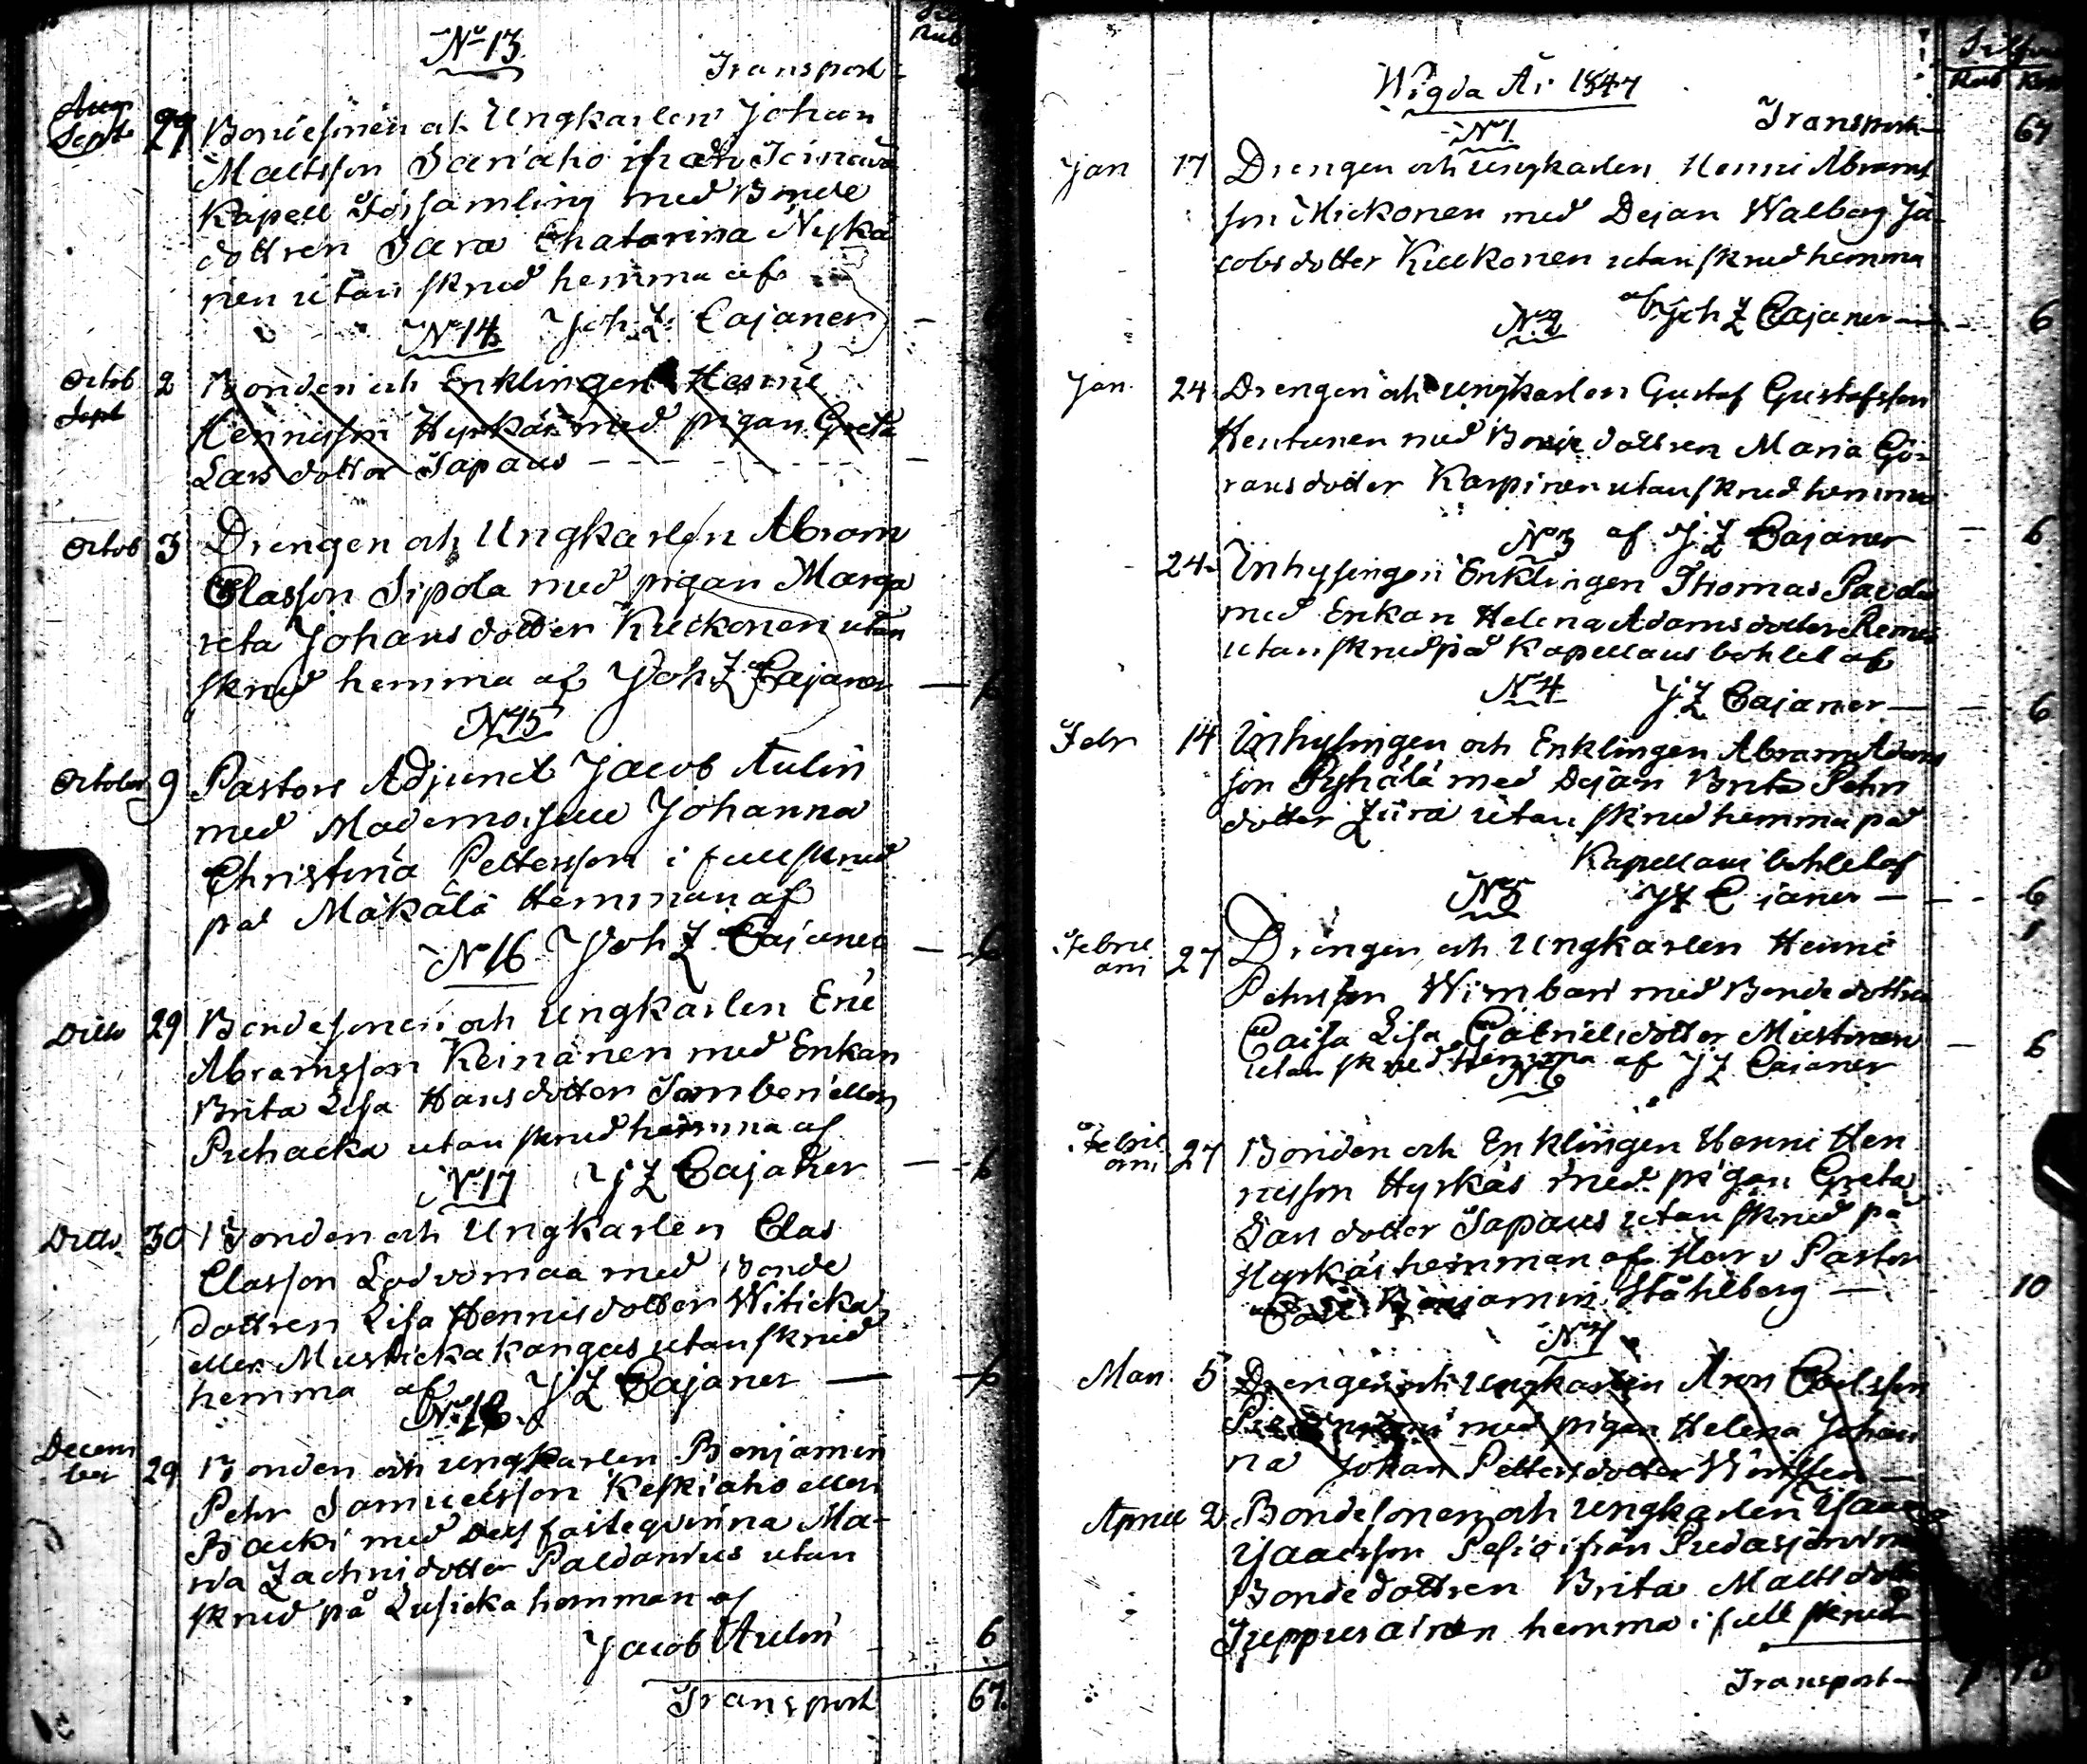 No 13
Transport
Aug
Sept 29 Bondesonen och Ungkarlen Johan
Mattsson Sariaho ifrån
Kapell Församling med Bonde
dottren Sara Chatarina Nyskä
nen utan skrud hemma af
No 14 Joh Z Cajaner
Octob 2 Bonden och Enklingen Henric
Sept Hennisson Hyrkäs med pigan Greta
Lars dotter Sapaus
Octob 3 Drengen och Ungkarlen Abram
Classon Sipola med pigan Marga
reta Johans dotter Kuckonen utan
skrud hemma af Joh Z Cajaner
No 15
October 9 Pastors Adjunct Jacob Aulin
med Mademoiselle Johanna
Christina Pettersson i full skrud
på Mäkälä Hemman af
No 16 Joh Z Cajaner 6
Ditto 29 Bondesonen och Ungkarlen Eric
Abramsson Keinänen med Enkan
Brita Lisa Hansdotter Tornberg eller
Puhacka utan skrud hemma af
No 17 J Z Cajaner 6
Ditto 30 Bonden och Ungkarlen Clas
Classon Lodvomaa med Bonde
dottren Lisa Hennisdotter Witicka
eller Mustickakangas utan skrud
hemma af J Z Cajaner 6
No 18
Decem
ber 29 Bonden och ungkarlen Benjamin
Pehr Samuelsson Keskiaho eller
Backi med des fästeqvinna Ma-
ria Zachrisdotter Paldanius utan
skrud på Lusicka hemman af
Jacob Aulin 6
Transport 67
Silfver
Wigda År 1847 Rub Kop
No 1 Transport 67
Jan 17 Drengen och ungkarlen Henric Abrams
son Mickonen med Dejan Walborg Ja
cobsdotter Kuckonen utan skrud hemma
No 2 af Joh Z Cajaner 6
Jan 24 Drengen och ungkarlen Gustaf Gustafsson
Heutunen med Bondedottren Maria Gö-
ransdotter Karpinen utan skrud hemma
No 3 af J Z Cajaner 6
24 Inhysingen Enklingen Thomas
med Enkan Helena Adamsdotter
utan skrud på Kapellans bohlet af
No 4 J Z Cajaner 6
Febr 14 Inhysingen och Enklingen Abram Adams
son Pyhälä med Dejan Brita Pehrs
dotter utan skrud hemma på
Kapellans bohlet af
No 5 J Z Cajaner 6
Febru
arii 27 Drengen och Ungkarlen Henric
Pehrsson Wimbari med Bondedottren
Caisa Lisa Gabrielsdotter Mustonen
utan skrud hemma af J Z Cajaner 6
No 6
Febru
arii 27 Bonden och Enklingen Henric Hen
nisson Hyrkäs med pigan Greta
Lars dotter Sapaus utan skrud på
Hyrkäs hemman af Herr v Pastor
Benjamin Ståhlberg 10
No 7
Mars 5 Drengen och ungkarlen Aron Carlsson
med pigan Helena Johan
na Johan Pettersdotter
April 2 Bondesonen och Ungkarlen Isaac
Isaacsson Pesiö ifrån Pudasjärvi med
Bondedottren Brita Mattsdotter
Juppurainen hemma i full skrud
Transport